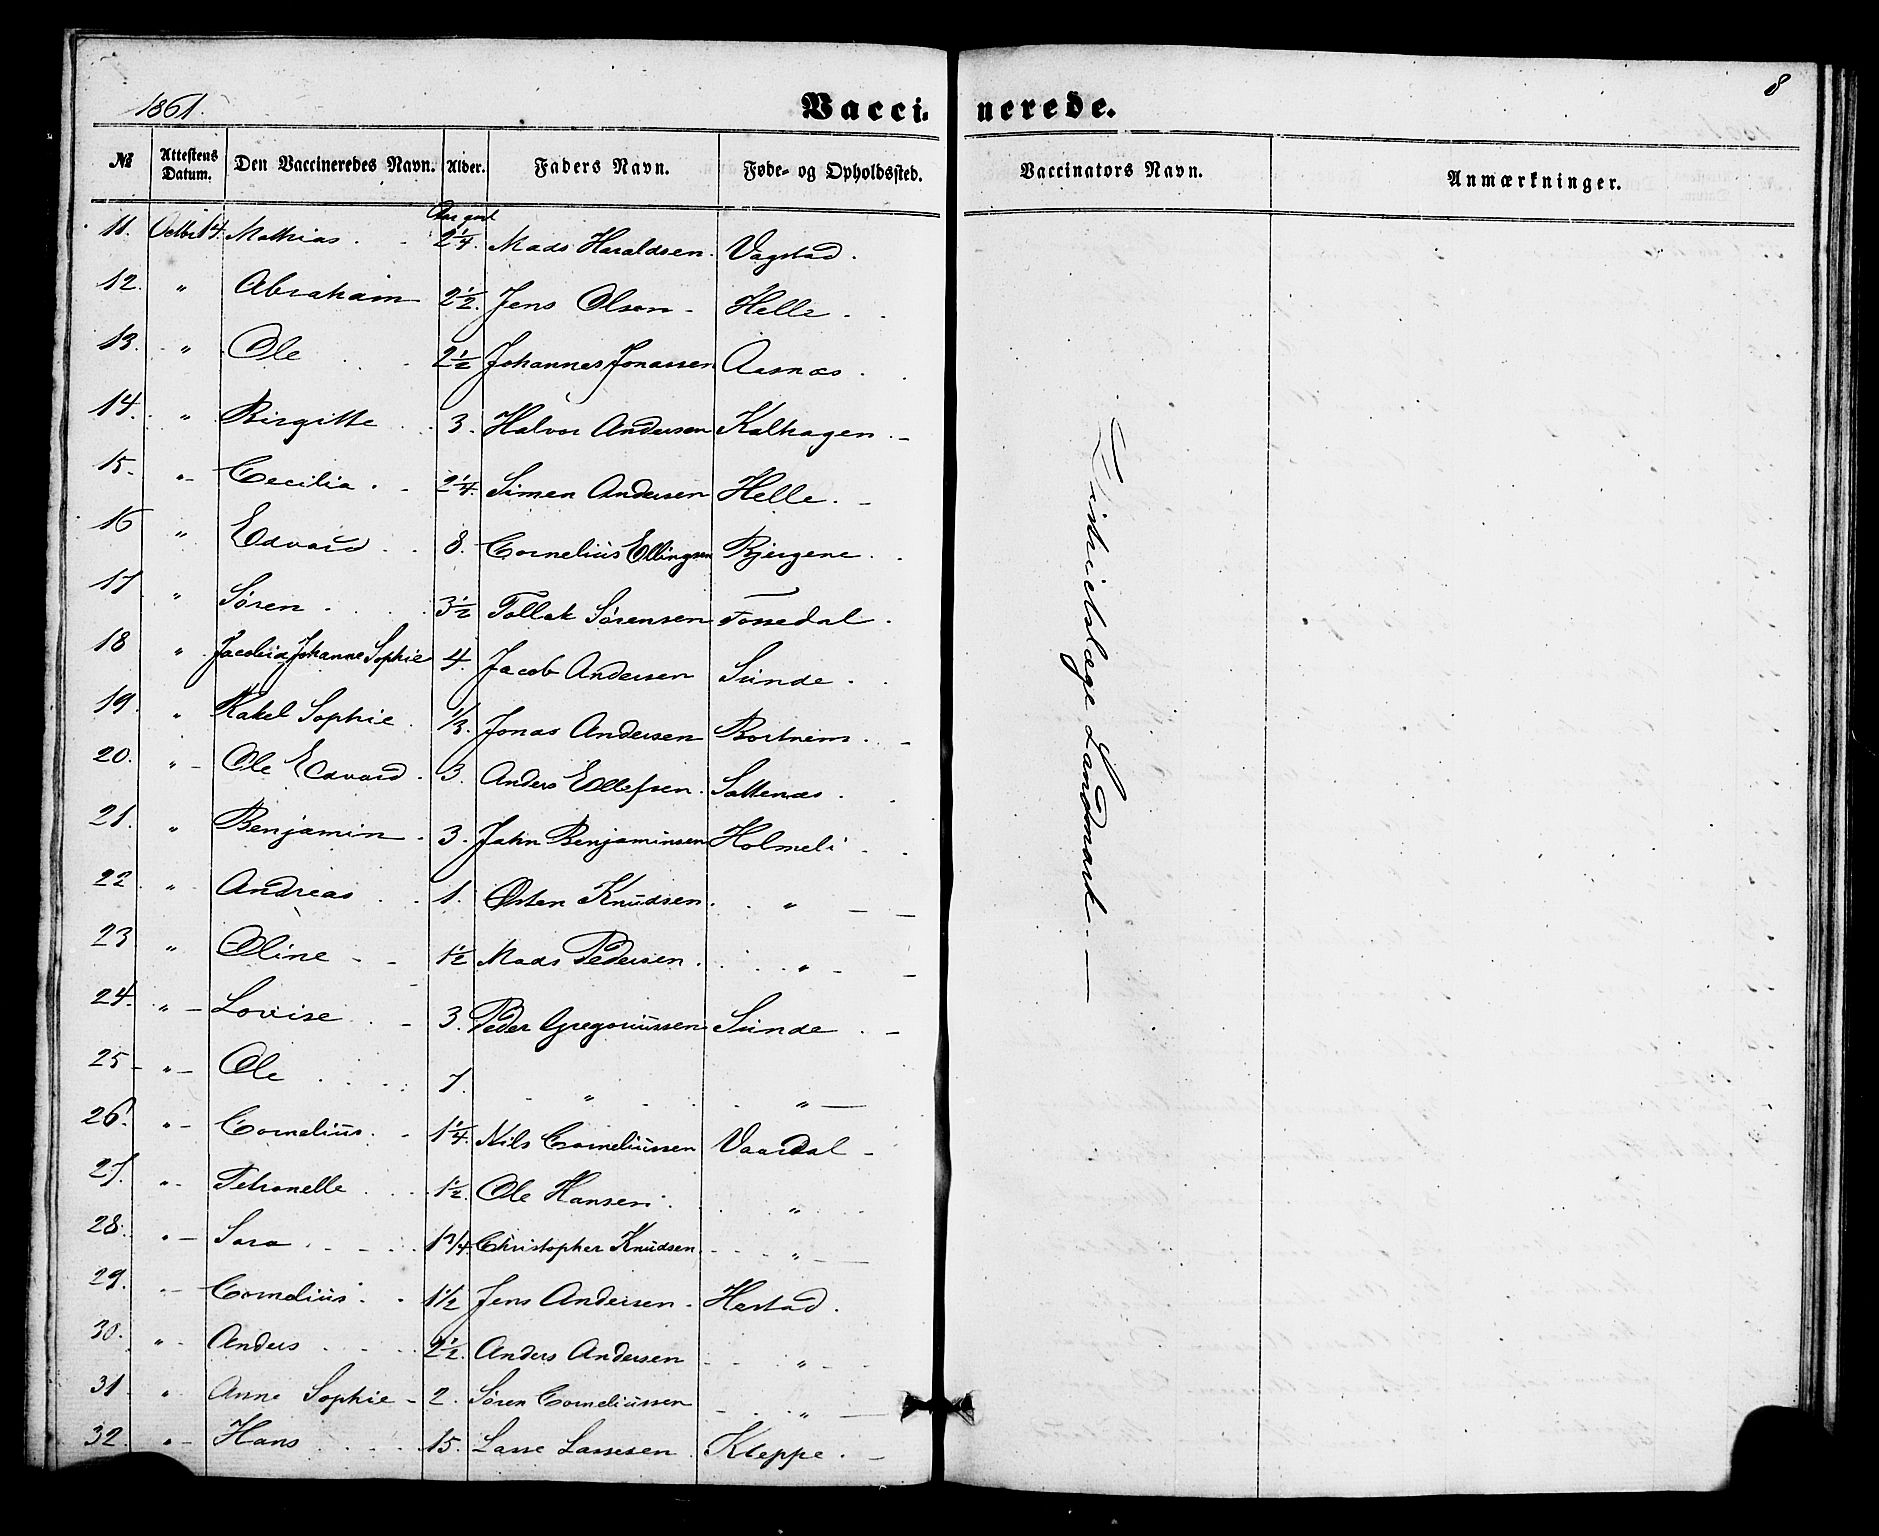 8
1861.
Vaccinerede.
№ Attestens Datum. Den Vaccineredes Navn. Alder. Faders Navn. Føde- og Opholdssted. Vaccinators Navn. Anmærkninger.
11. Octbr 14. Mathias. 2 1/4. Mads Haraldsen. Vagstad.
12. " Abraham 2 1/2. Jens Olsen - Helle.
13. " Ole 2 1/2 Johannes Jonassen Aasnæs.
14. " Birgitte 3. Halvor Andersen Kalhagen. -
15. " Cecilia. 2 1/4. Simen Andersen Helle. -
16 " Edvard. 8. Cornelius Ellingsen Bjergene.
17. " Søren. 3 1/2 Tollak Sørensen Fossedal.
18 " Jacobia Johanne Sophie 4. Jacob Andersen Sunde.
19. " Rakel Sophie. 1/3. Jonas Andersen Bortnem. -
20. " Ole Edvard. 3. Anders Ellefsen. Sattenæs.
21. " Benjamin. 3. John Benjaminsen Holmeli
22. " Andreas 1. Østen Knudsen. " -
23 " Oline - 1 1/2 Mads Pedersen. " -
24. " Lovise - 3. Peder Gregoriussen Sunde. -
25 " Ole 7. " " -
26. " Cornelius. 1 1/4. Nils Corneliussen Vaardal -
27. " Petronelle 1 1/2. Ole Hansen. "
28. " Sara 1 3/4 Christopher Knudsen. " -
29. " Cornelius. 1 1/2 Jens Andersen. Hestad.
30. " Anders 2 1/2. Anders Andersen " -
31. " Anne Sophie - 2. Søren Corneliussen " -
32. " Hans 15. Lasse Lassesen. Kleppe. -
Districtslæge Landmark. -